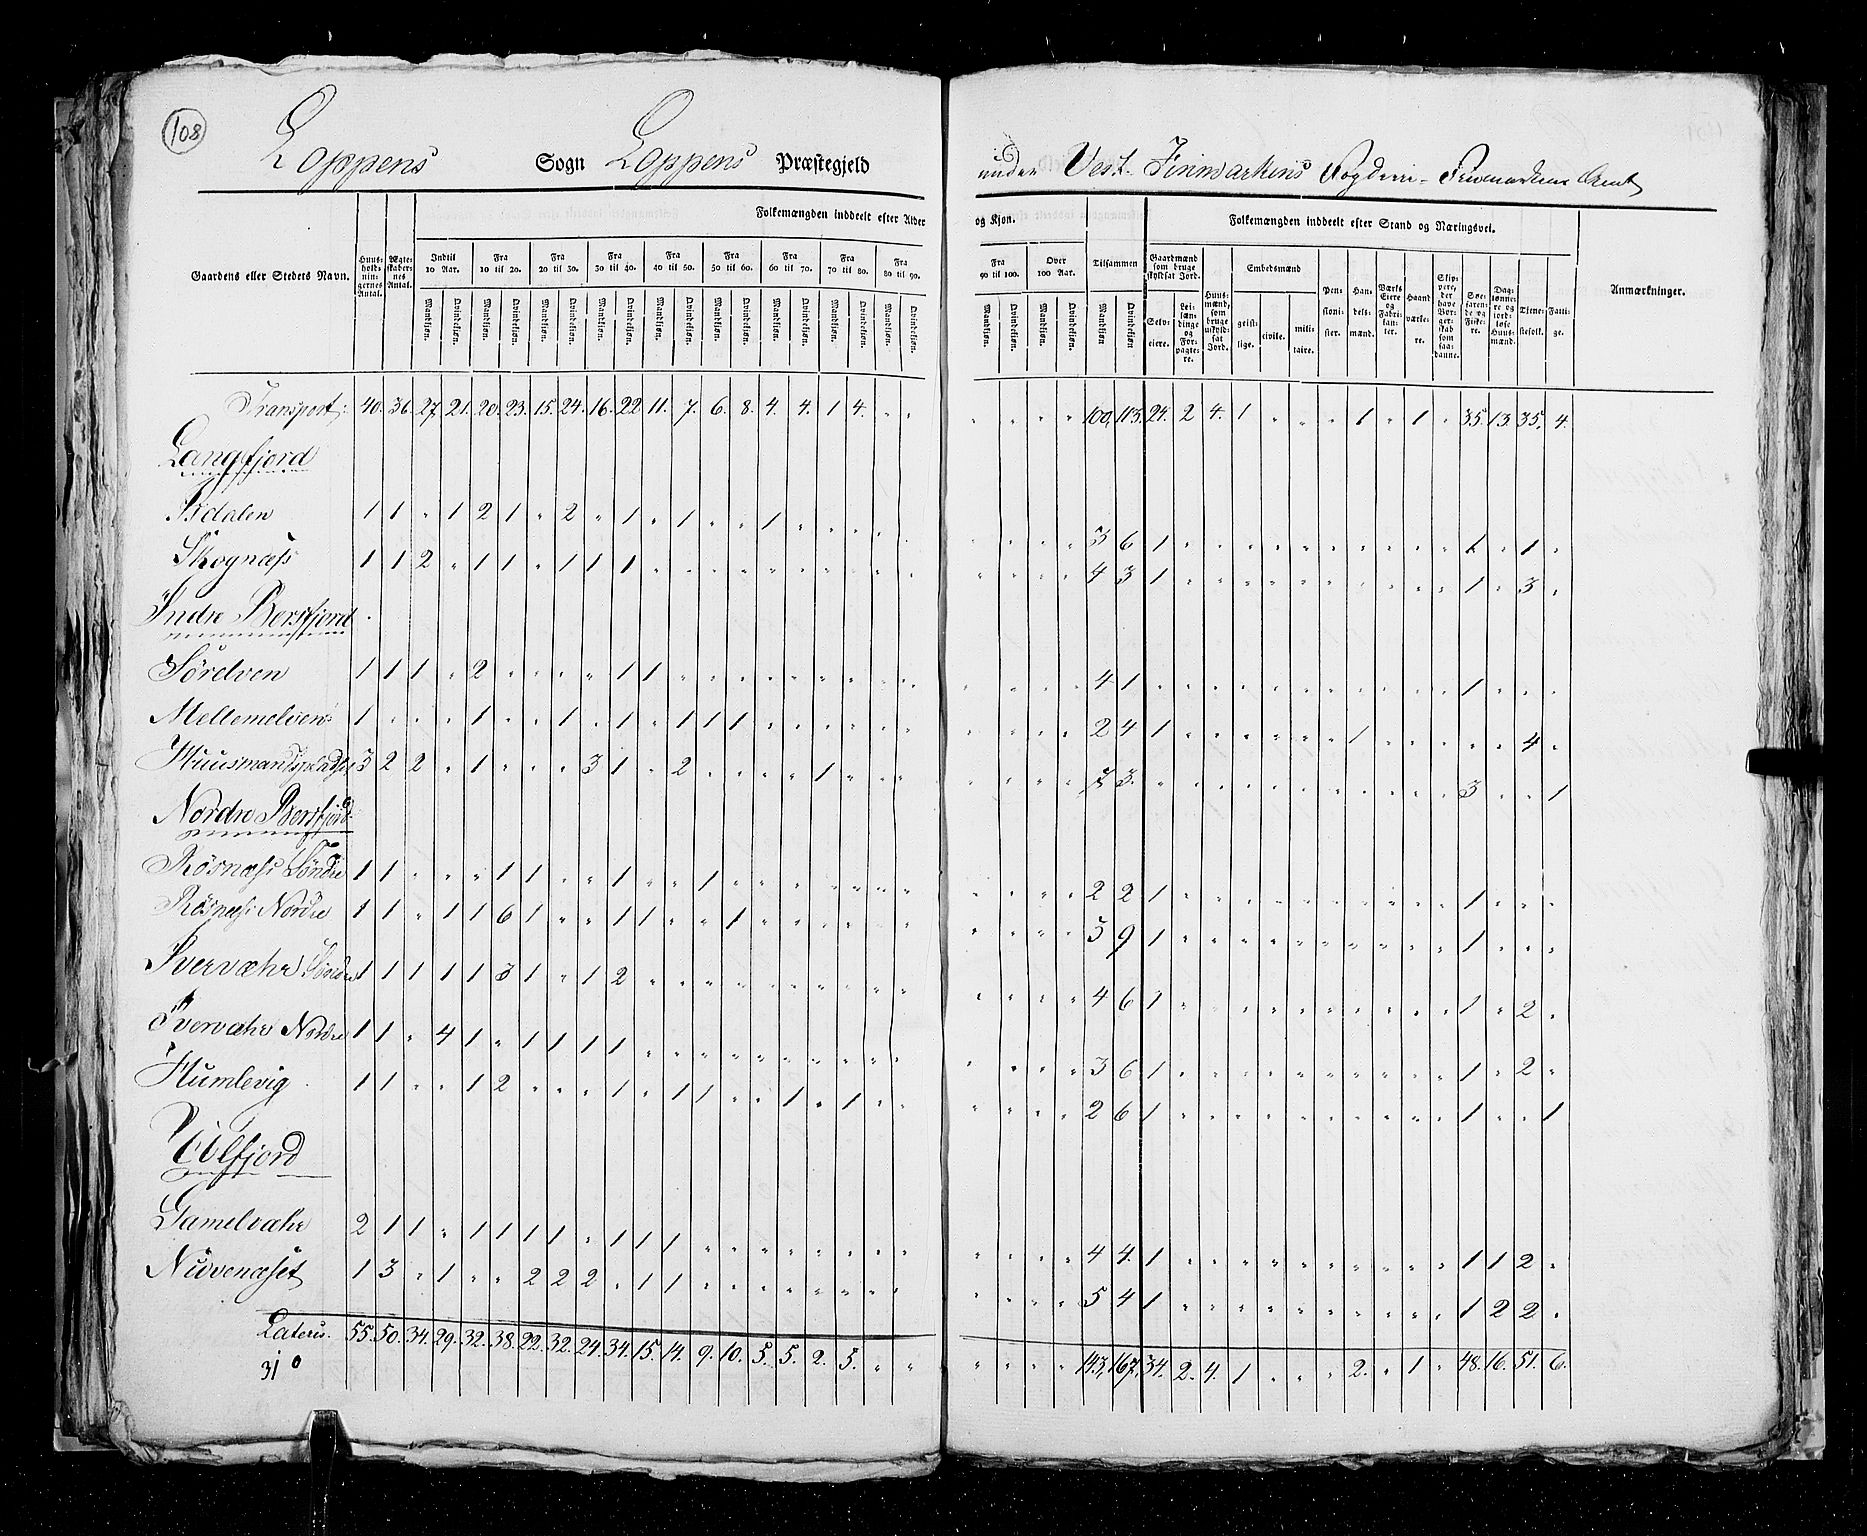 108
Loppens Sogn Loppens Præstegjeld under Vest-Finmarkens Fogderi - Finmarkens Amt
Folkemængden inddeelt efter Alder og Kjøn. Folkemængden inddeelt efter Stand og Næringsvei.
Gaardens eller Stedets Navn. Huusholdningernes Antal. Ægteskabernes Antal. Indtil 10 Aar. Fra 10 til 20. Fra 20 til 30. Fra 30 til 40. Fra 40 til 50. Fra 50 til 60. Fra 60 til 70. Fra 70 til 80. Fra 80 til 90. Fra 90 til 100. Over 100 Aar. Tilsammen Gaardmænd som bruge skyldsat Jord. Selveiere. Leilændinge og Forpagtere. Huusmænd, som bruge uskyldsat Jord. Embedsmænd geistlige. civile. militaire. Pensionister. Handelsmænd. Værks Eiere og Fabrikanter. Haandværkere. Skippere, der have Borgerskab som saadanne. Søefarende og Fiskere. Daglønnere og jordløse Huusmænd. Tjenestefolk. Fattige. Anmærkninger.
Mandkjøn. Qvindekjøn. Mandkjøn. Qvindekjøn. Mandkjøn. Qvindekjøn. Mandkjøn. Qvindekjøn. Mandkjøn. Qvindekjøn. Mandkjøn. Qvindekjøn. Mandkjøn. Qvindekjøn. Mandkjøn. Qvindekjøn. Mandkjøn. Qvindekjøn. Mandkjøn. Qvindekjøn. Mandkjøn. Qvindekjøn. Mandkjøn. Qvindekjøn
Transport: 40. 36. 27. 21. 20. 23. 15. 24. 16. 22 11. 7. 6. 8. 4. 4. 1 4. " " " " " " 100, 113. 24. 2 4. 1 " " " 1 " 1 " 35. 13. 35. 4.
Langfjord
Isdalen 1 1 " 1 2 1 " 2 " 1 " 1 " " 1 " " " " " " " " " 3 6 1 " " " " " " " " " " 1 " 1 "
Skognæss 1 1 2 " 1 1 " 1 1 1 " " " " " " " " " " " " " " 4 3 1 " " " " " " " " " " 1 " 3 "
Indre Bersfjord
Sörelven 1 1 1 " 2 " " " " 1 1 " " " " " " " " " " " " " 4 1 " " " " " " " " " " " 1 " " "
Mellemelven 1 " " " 1 " " 1 " 1 " 1 1 1 " " " " " " " " " " 2 4 1 " " " " " " 1 " " " " " 4 "
Huusmandsplads 3 2 2 " 1 " " " 3 1 " 2 " " " " 1 " " " " " " " 7 3. " " " " " " " " " " " 3 " " 1
Nordre Bersfjord
Rösnæss Söndre 1 1 " " " 1 1 " " 1 " " 1 " " " " " " " " " " " 2 2 1 " " " " " " " " " " 1 " " "
Rösnæss Nordre 1 1 " 1 1 6 1 " " 1 1 " " 1 " " " " " " " " " " 3 9 1 " " " " " " " " " " 1 " " "
Sværvahr Söndre 1 1 1 1 1 3 1 " 1 2 " " " " " " " " " " " " " " 4 6 1 " " " " " " " " " " 1 " 2 "
Sværvahr Nordre 1 1 " 4 1 " 1 1 1 1 " " " " " " " " " " " " " " 3 6 1 " " " " " " " " " " 1 " 2 "
Humlevig 1 1 " " 1 2 " " " 1 " 1 1 " " 1 " 1 " " " " " " 2 6 1 " " " " " " " " " " 1 " " 1
Gamelvahr 2 1 1 " 1 1 1 1 " 1 1 1 " " " " " " " " " " " " 4 4. 1 " " " " " " " " " " 1 1 2 "
Nuvenæset 1 3 " 1 " " 2 2 2 " 1 1 " " " " " " " " " " " " 5 4 1 " " " " " " " " " " 1 2 2 "
Lateris. 55. 50. 34. 29. 32. 38. 22. 32. 24. 34. 15. 14. 9. 10. 5. 5. 2. 5. " " " " " " 143, 167. 34. 2. 4. 1 " " " 2. " 1 " 48. 16. 51. 6.
310